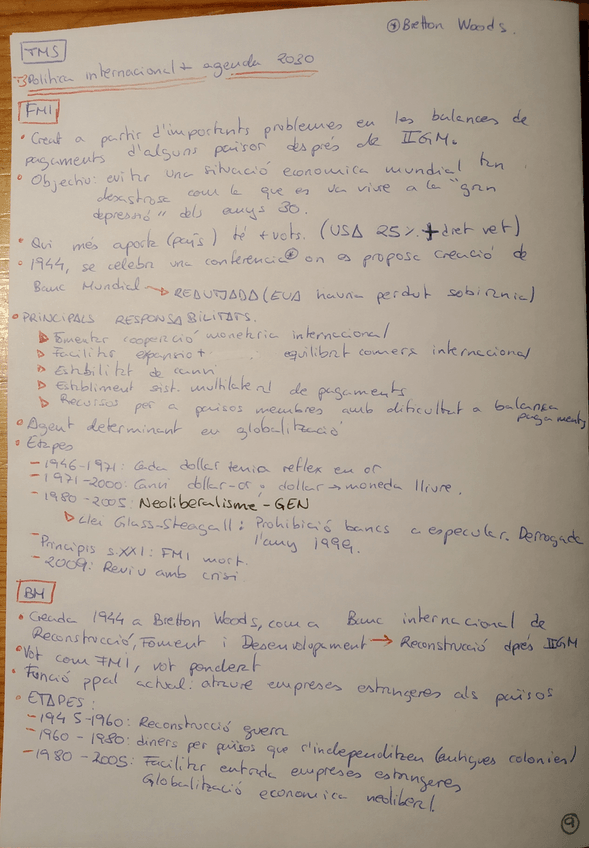 *Bretton Woods.
TMS
Política internacional + agenda 2030
FMI
• Creat a partir d'importants problemes en les balances de
pagaments d'alguns països després de IIGM.
• Objectiu: evitar una situació economica mundial tan
desastrosa com la que es va viure a la "gran
depresió" dels anys 30.
• Qui més aporta (país) té + vots. (USA 25% + dret vet)
• 1944, se celebra una conferencia* on es proposa creació de
Banc Mundial → REBUTJADA (EUA hauria perdut sobirania)
• PRINCIPALS RESPONSABILITATS.
▷ Fomentar cooperació monetaria internacional
▷ Facilitar expansió + equilibrat comerç internacional
▷ Estabilitat de canvi
▷ Establiment sist. multilateral de pagaments
▷ Recursos per a països membres amb dificultat a balança
pagaments
• Agent determinant en globalització
• Etapes
- 1946-1971: Cada dollar tenia reflex en or
- 1971-2000: Canvi dollar-or a dollar → moneda lliure.
- 1980-2005: Neoliberalisme-GEN
▷ Llei Glass-Steagall: Prohibició bancs a especular. Derogada
l'any 1999.
- Principis s.XXI: FMI mort.
- 2009: Reviu amb crisi
BM
• Creada 1944 a Bretton Woods, com a Banc internacional de
Reconstrucció, Foment i Desenvolupament → Reconstrucció dprés IIGM
• Vot com FMI, vot ponderat
• Funció ppal actual: atraure empreses estrangeres als països
• ETAPES:
- 1945-1960: Reconstrucció guerra
- 1960-1980: diners per països que s'independitzen (antigues colonies)
- 1980-2005: Facilitar entrada empreses estrangeres
Globalització economica neoliberal.
9